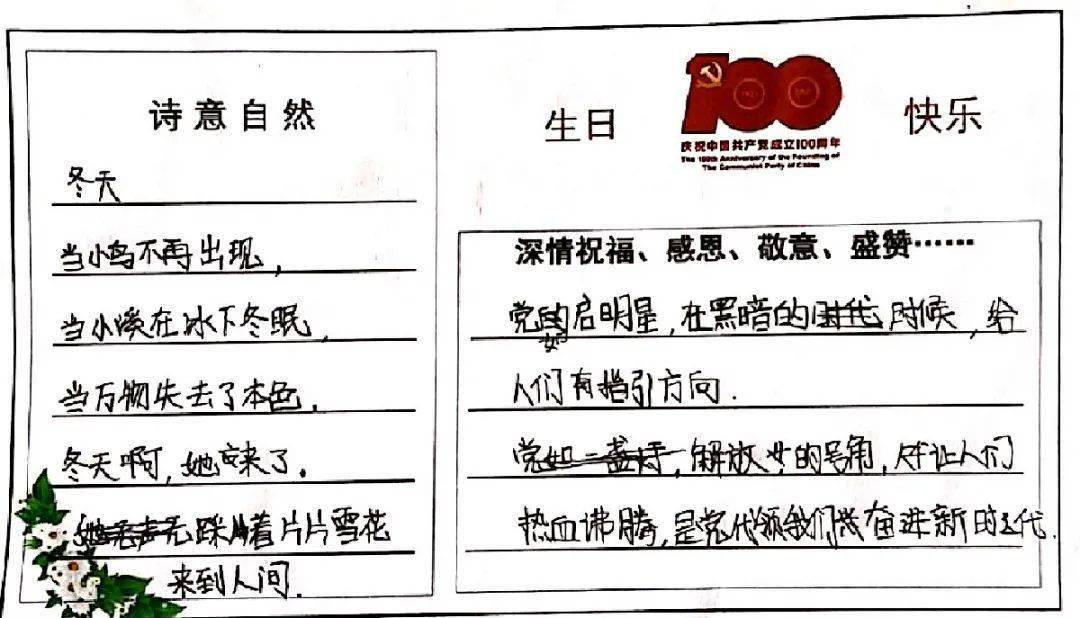 诗意自然
冬天
当小鸟不再出现，
当小溪在冰下冬眠，
当万物失去了本色，
冬天啊，她来了。
踩着片片雪花
来到人间.
生日
100
庆祝中国共产党成立100周年
The 100th Anniversary of the Founding of
The Communist Party of China
快乐
深情祝福、感恩、敬意、盛赞……
党如启明星，在黑暗的时候，给
人们有指引方向.
党如一盏灯，解放的号角，让人们
热血沸腾，是党代领我们奋进新时代.